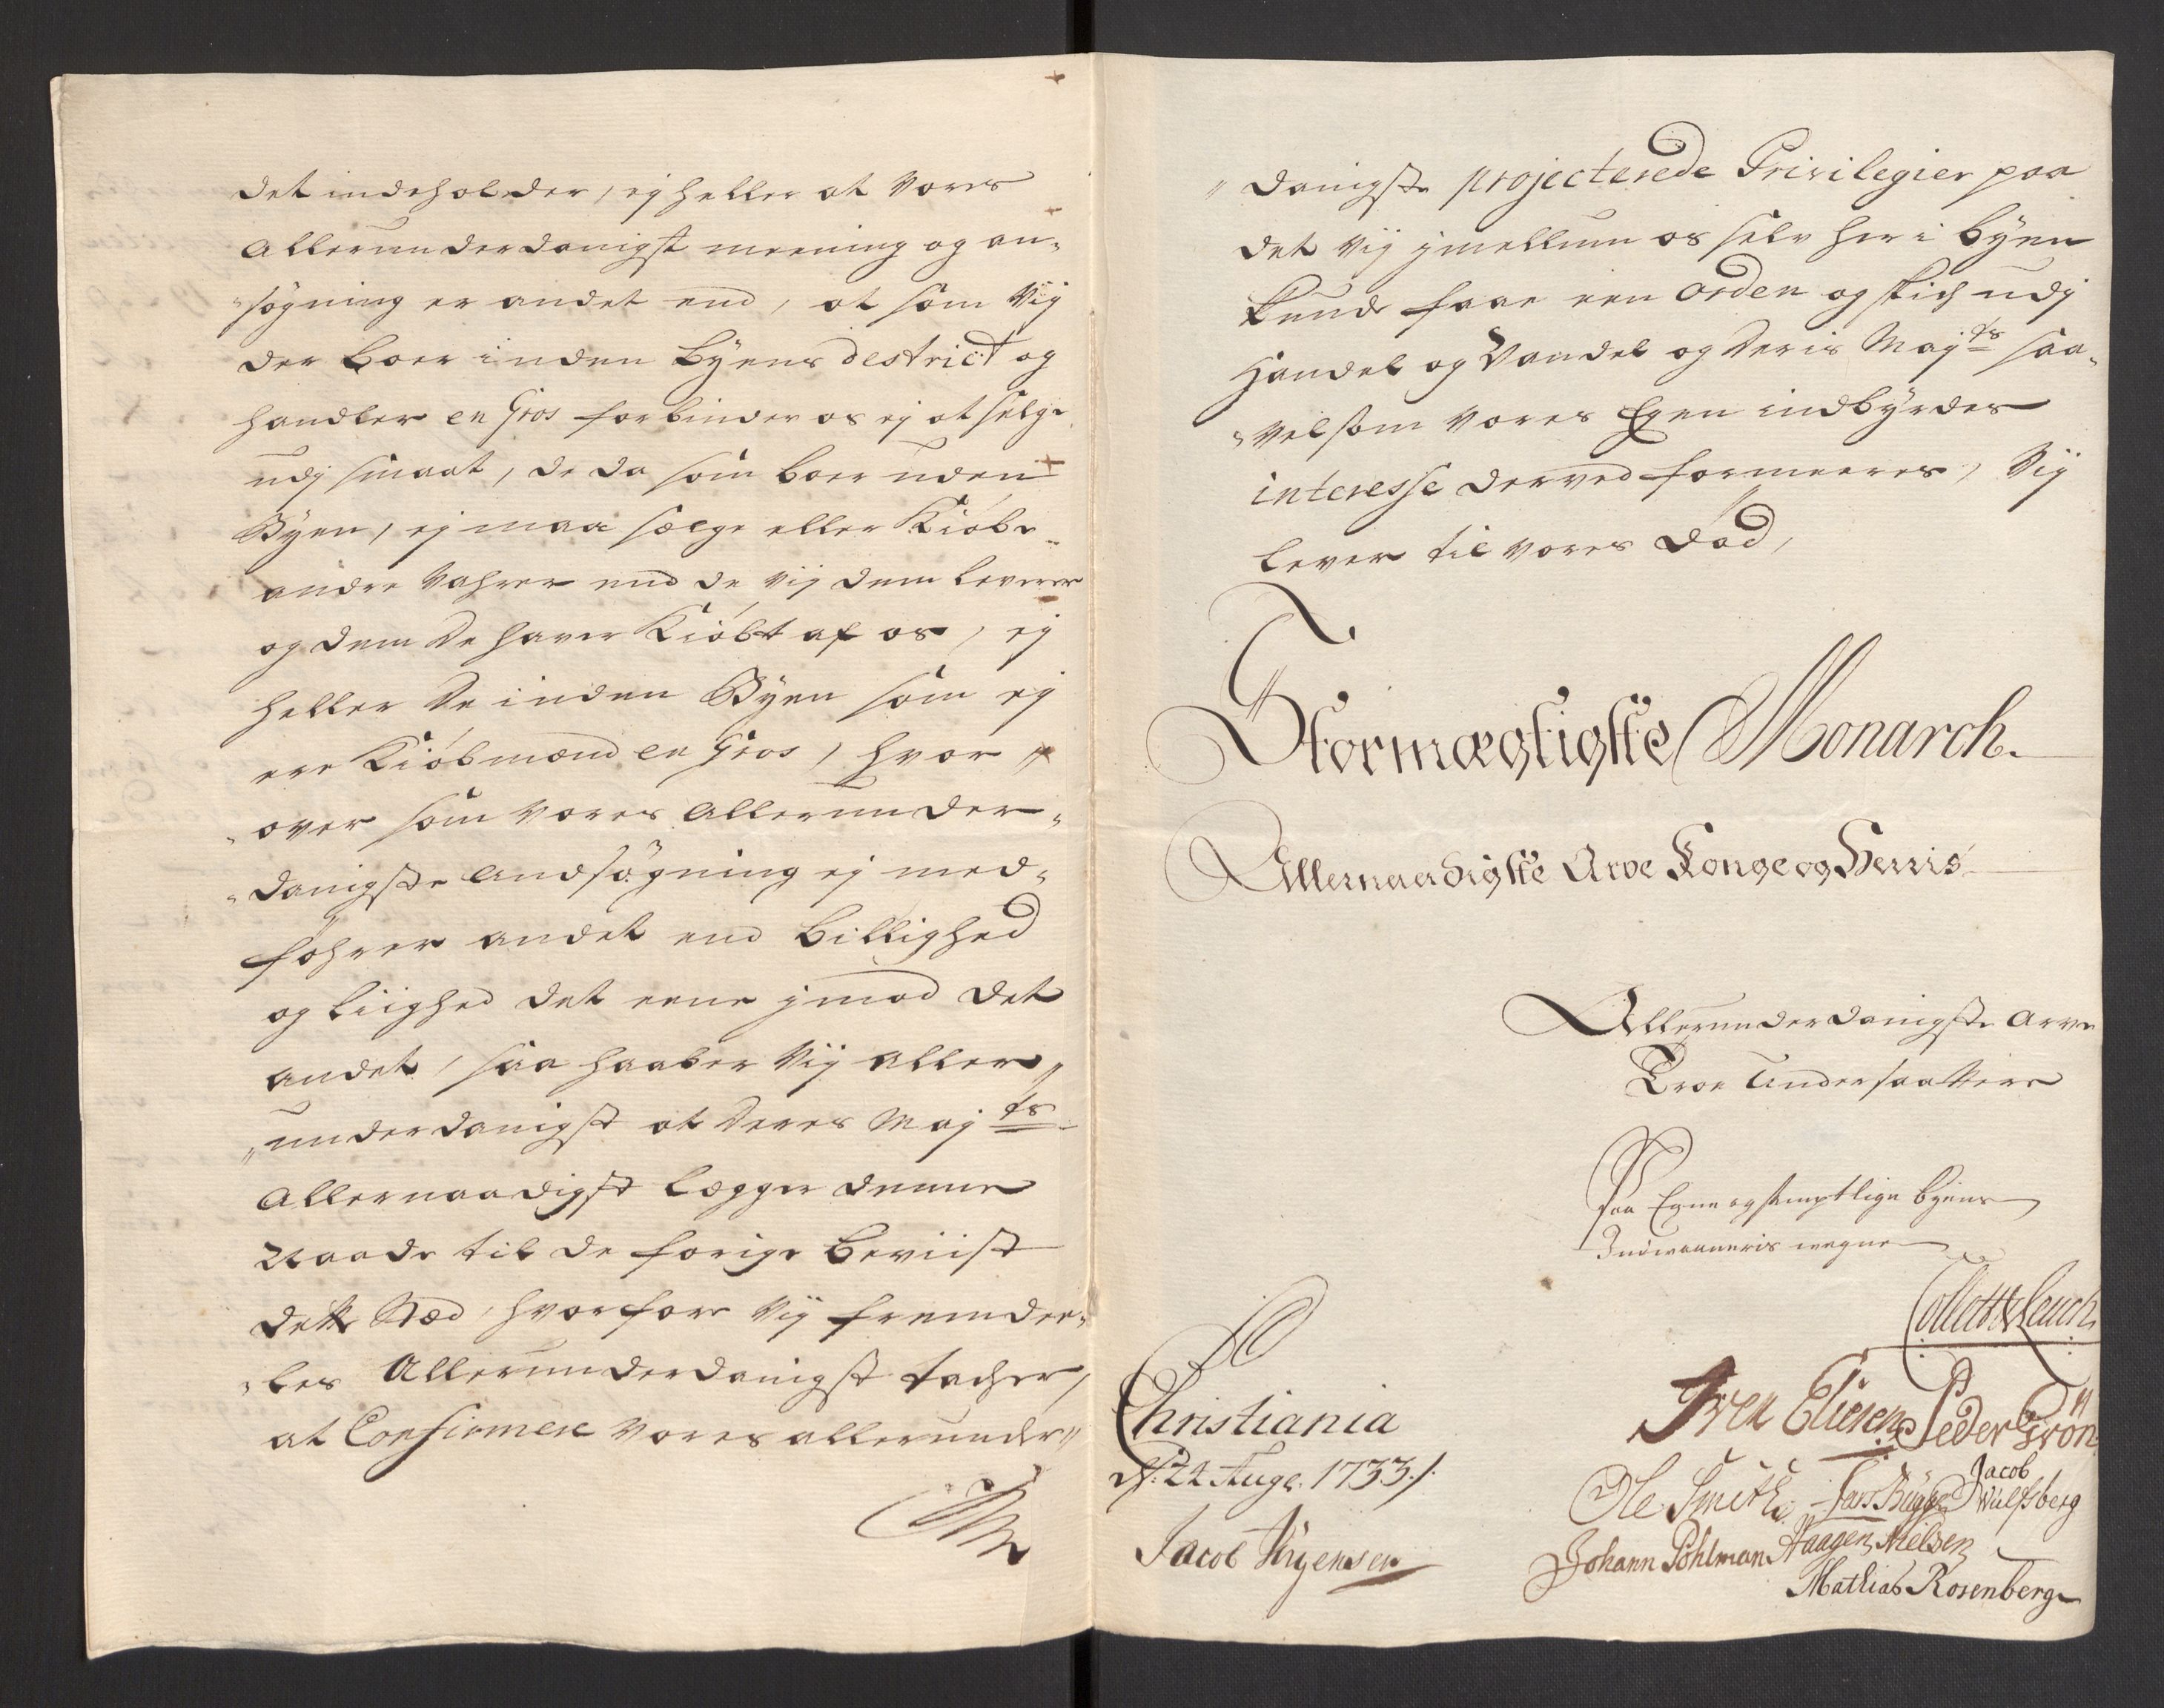 det indeholder, ej heller at Vores
Allerunderdanigst meening og an„
„søgning er andet end, at som Vij
der boer inden Byens destrict og
handler en Gros forbinder os ej at selge
udj smaat, de da som boer uden
Byen, ej maa sælge eller Kiøbe
andre Vahrer end de Vij dem leverer
og dem de haver Kiøbt af os, ej
heller de inden Byen som ej
ere Kiøbmænd en Gros, hvor„
„over som vores Allerunder„
„danigste Andsøgning ej med„
føhrer andet end billighed
og liighed det eene jmod det
andet, saa haaber Vij aller„
„underdanigst at Deres Maj ts
Allernaadigst Legger denne
Naade til de forige beviist
dette Stæd, hvorfore Vij fremdee„
„les Allerunderdanigst
at Confirmere vores allerunder„
„danigste projecterede Privilegier paa
det Vij jmellum os selv her i Byen
kunde faae een Orden og skich udj
Handel og Vandel og Deris Maj ts saa„
„vel som Vores Egen indbyrdes
interesse derved formeeres, Vij
lever til vores død,
Stormægtigste Monarch.
Allernaadigste Arve Konge og Herris
Allerunderdanigste Arve
Troe Undersaatter
Paa Egne og samptlige byens
Indvaaneris vegne
Collett & Leuch
Christiania
d: 22 Aug. 1733./.
Iver Eliesen Peder Grøn
Ole Smith Lars Bugge Jacob Wulfsberg
Jacob Jørgensen
Johann Pohlman Haagen Nielsen
Mathias Rosenberg